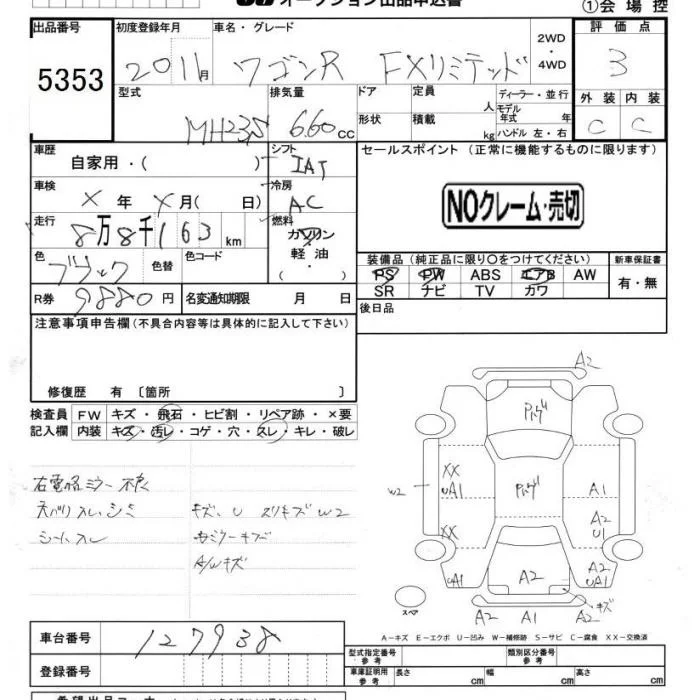 オークション出品申込書
①会場控
出品番号 初度登録年月 車名・グレード 2WD・4WD 評価点
5353 2011月 ワゴンR FXリミテッド 3
型式 排気量 ドア 定員 人 ディーラー・並行 外装 内装
MH23S 660cc 形状 積載 kg モデル年式 年 ハンドル 左・右 C C
車歴 シフト セールスポイント (正常に機能するものに限ります)
自家用・( ) IAT
車検 X年X月( 日) 冷房 AC
NOクレーム・売切
走行 8万8千163km 燃料 ガソリン 軽油・
色 ブラック 色替 色コード
装備品(純正品に限り○をつけてください) 新車保証書
PS PW ABS エアB AW 有・無
SR ナビ TV カワ
R券 9880円 名変通知期限 月 日
後日品
注意事項申告欄(不具合内容等は具体的に記入して下さい)
修復歴 有 〔箇所 〕
検査員 FW キズ・飛石・ヒビ割・リペア跡・×要
記入欄 内装 キズ・汚レ・コゲ・穴・スレ・キレ・破レ
右電格ミラー不良
天バリスレ、シミ
シートスレ
キズ、U スリキズ W2
右ミラーキズ
A/Wキズ
A2
XX
UA1
W2
XX
UA1
A1
A2
U1
A2
UA1
A2
キズ
A2 A1 A2
スペア
A-キズ E-エクボ U-凹み W-補修跡 S-サビ C-腐食 XX-交換済
車台番号 127938
登録番号
型式指定番号 参考 類別区分番号 参考
車庫証明用 参考 長さ cm 幅 cm 高さ cm